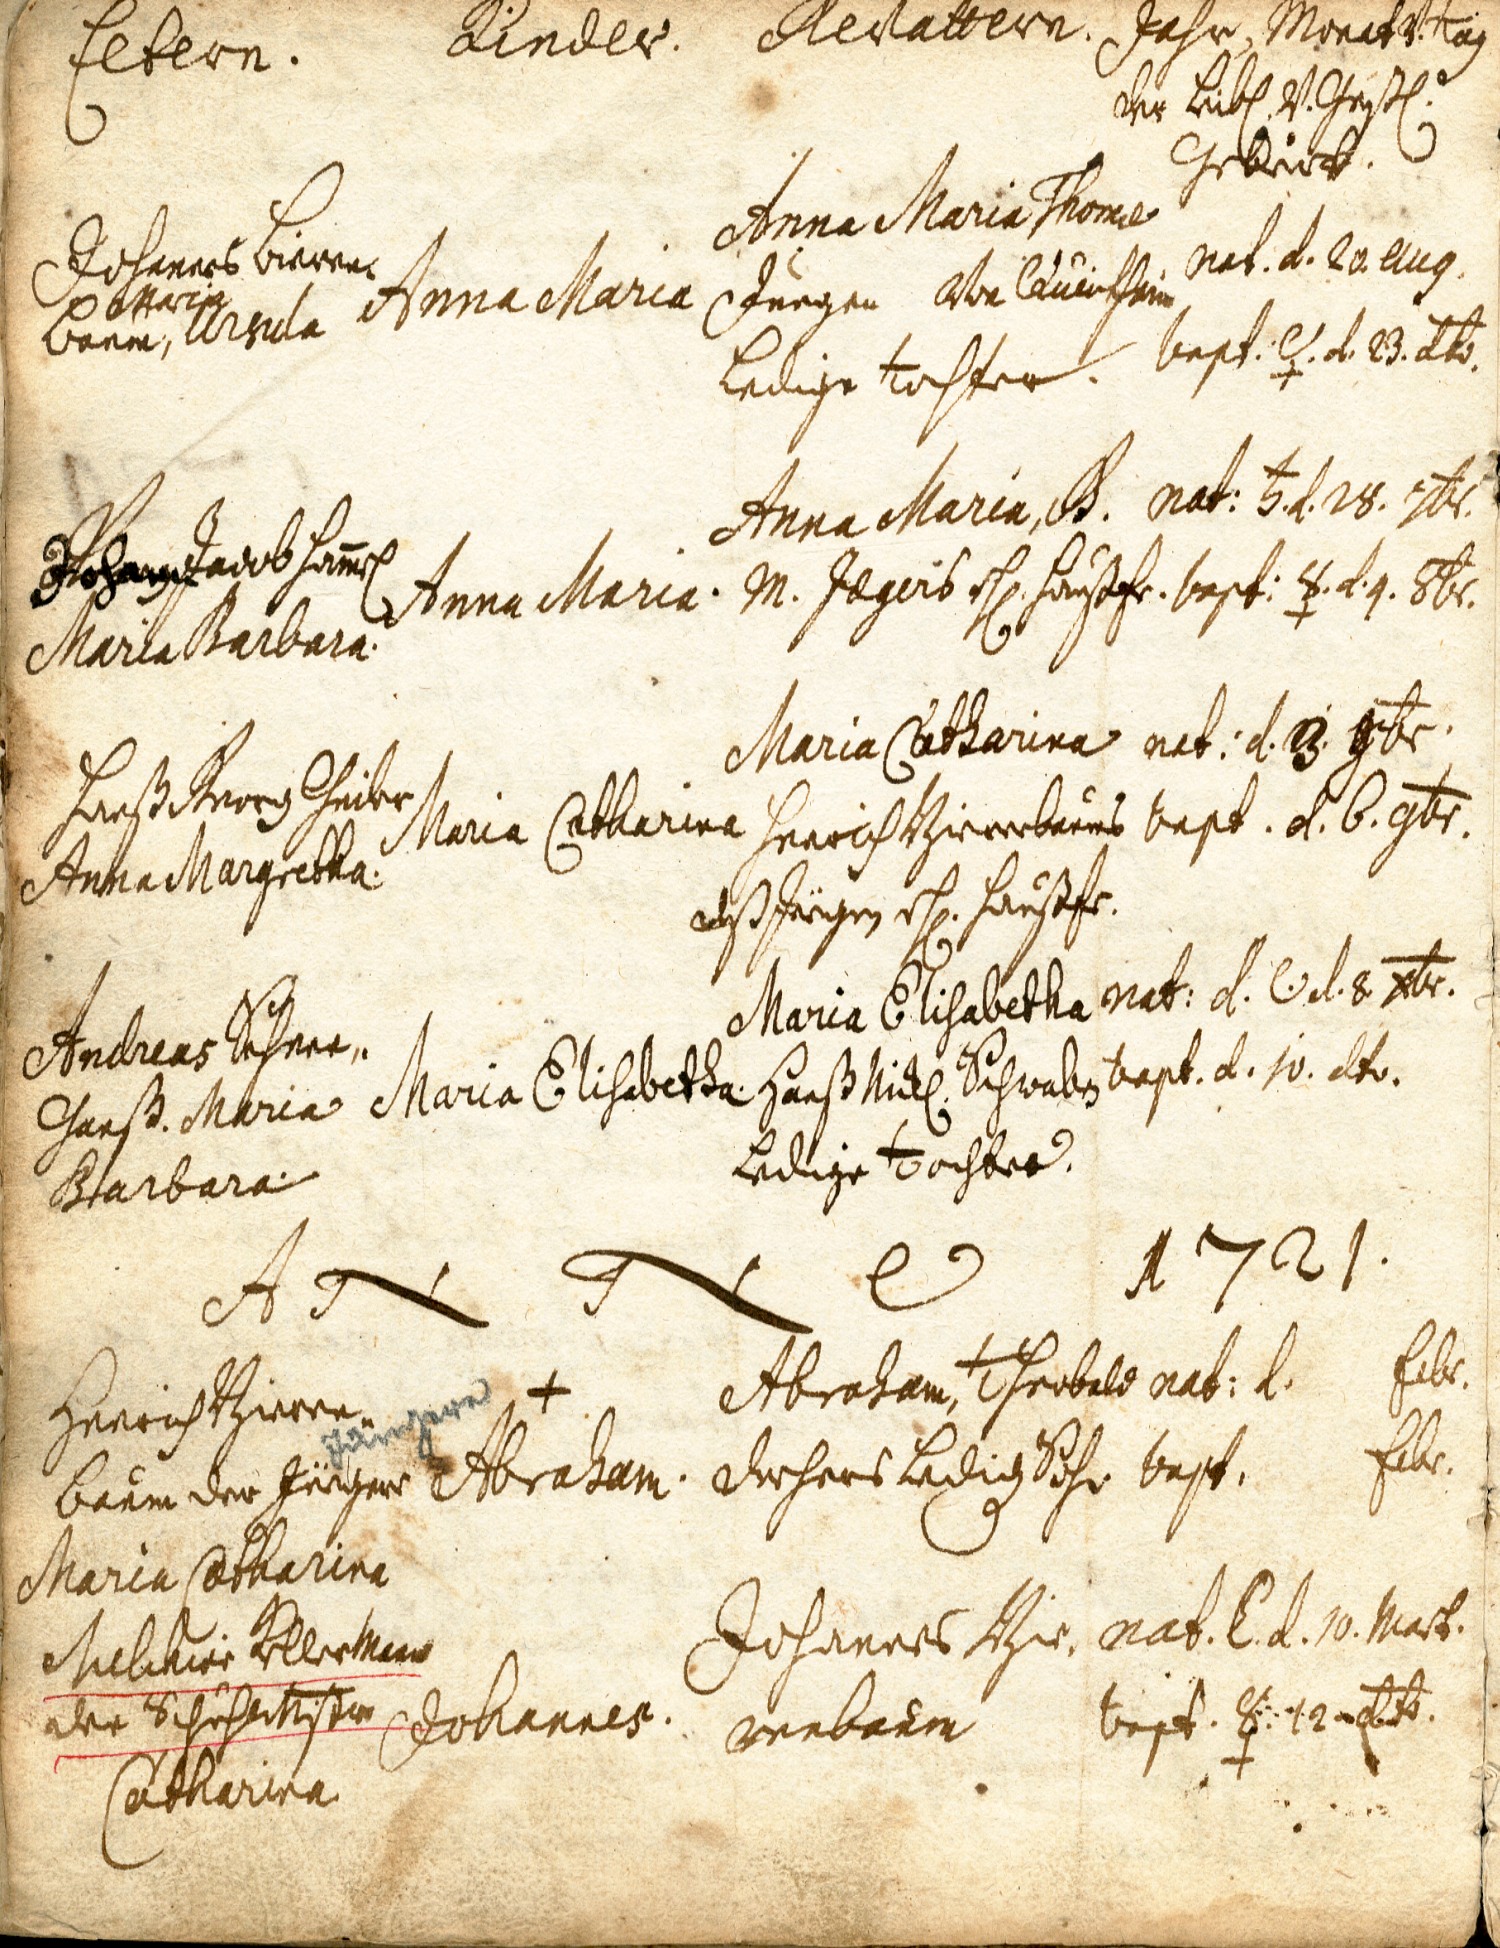 Eltern. Kinder. Gevattern. Jahr, Monat v. Tag
der Leibl. v. Geistl.
Geburt.
Johannes Bieren
baum, Maria Ursula
Anna Maria
Anna Maria Thome
Jürgen von
Ledige Tochter.
nat. d. 20. Aug.
bapt. ☿. d. 23. dto.
Jacob Ham̄el
Maria Barbara.
Anna Maria.
Anna Maria, B.
M. Jægeris ehl. Haußfr.
nat: ♄. d. 28. 7br.
bapt: ☿. d. 9. 8br.
Hanß Georg
Anna Margretha.
Maria Catharina
Maria Catharina
Henrich Bierenbaums
deß Jüngern ehl. Haußfr.
nat: d. 3. 9br.
bapt. d. 6. 9br.
Andreas Schnee„
Ganß. Maria
Barbara.
Maria Elisabetha.
Maria Elisabetha
Hanß Nickl. Schwabs
Ledige Tochter.
nat: d. ☾. d. 8. xbr.
bapt. d. 10. dto.
A N N O 1721.
Henrich Bieren„
baum der Jüngere
Jüngere
Maria Catharina
+
Abraham.
Abraham, Theobald
Dechers Ledig Sohn
nat: d. Febr.
bapt. Febr.
Melchior Kellermann
der Schuhmstr
Catharina
Johannes.
Johannes Bie„
renbaum
nat. d. 10. Mart.
bapt. ☿. 12 dto.